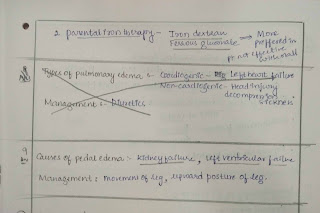 2. parental Iron therapy - Iron dextran
Ferrous gluconate ⇒ More
preffered in
pt not effective
with oral
Types of pulmonary edema :- Cardiogenic - Left heart failure
Non-cardiogenic - Head injury
decompression
sickness
Management :- Diuretics
9
Causes of pedal edema :- kidney failure, left ventricular failure
Management : movement of leg, upward posture of leg.